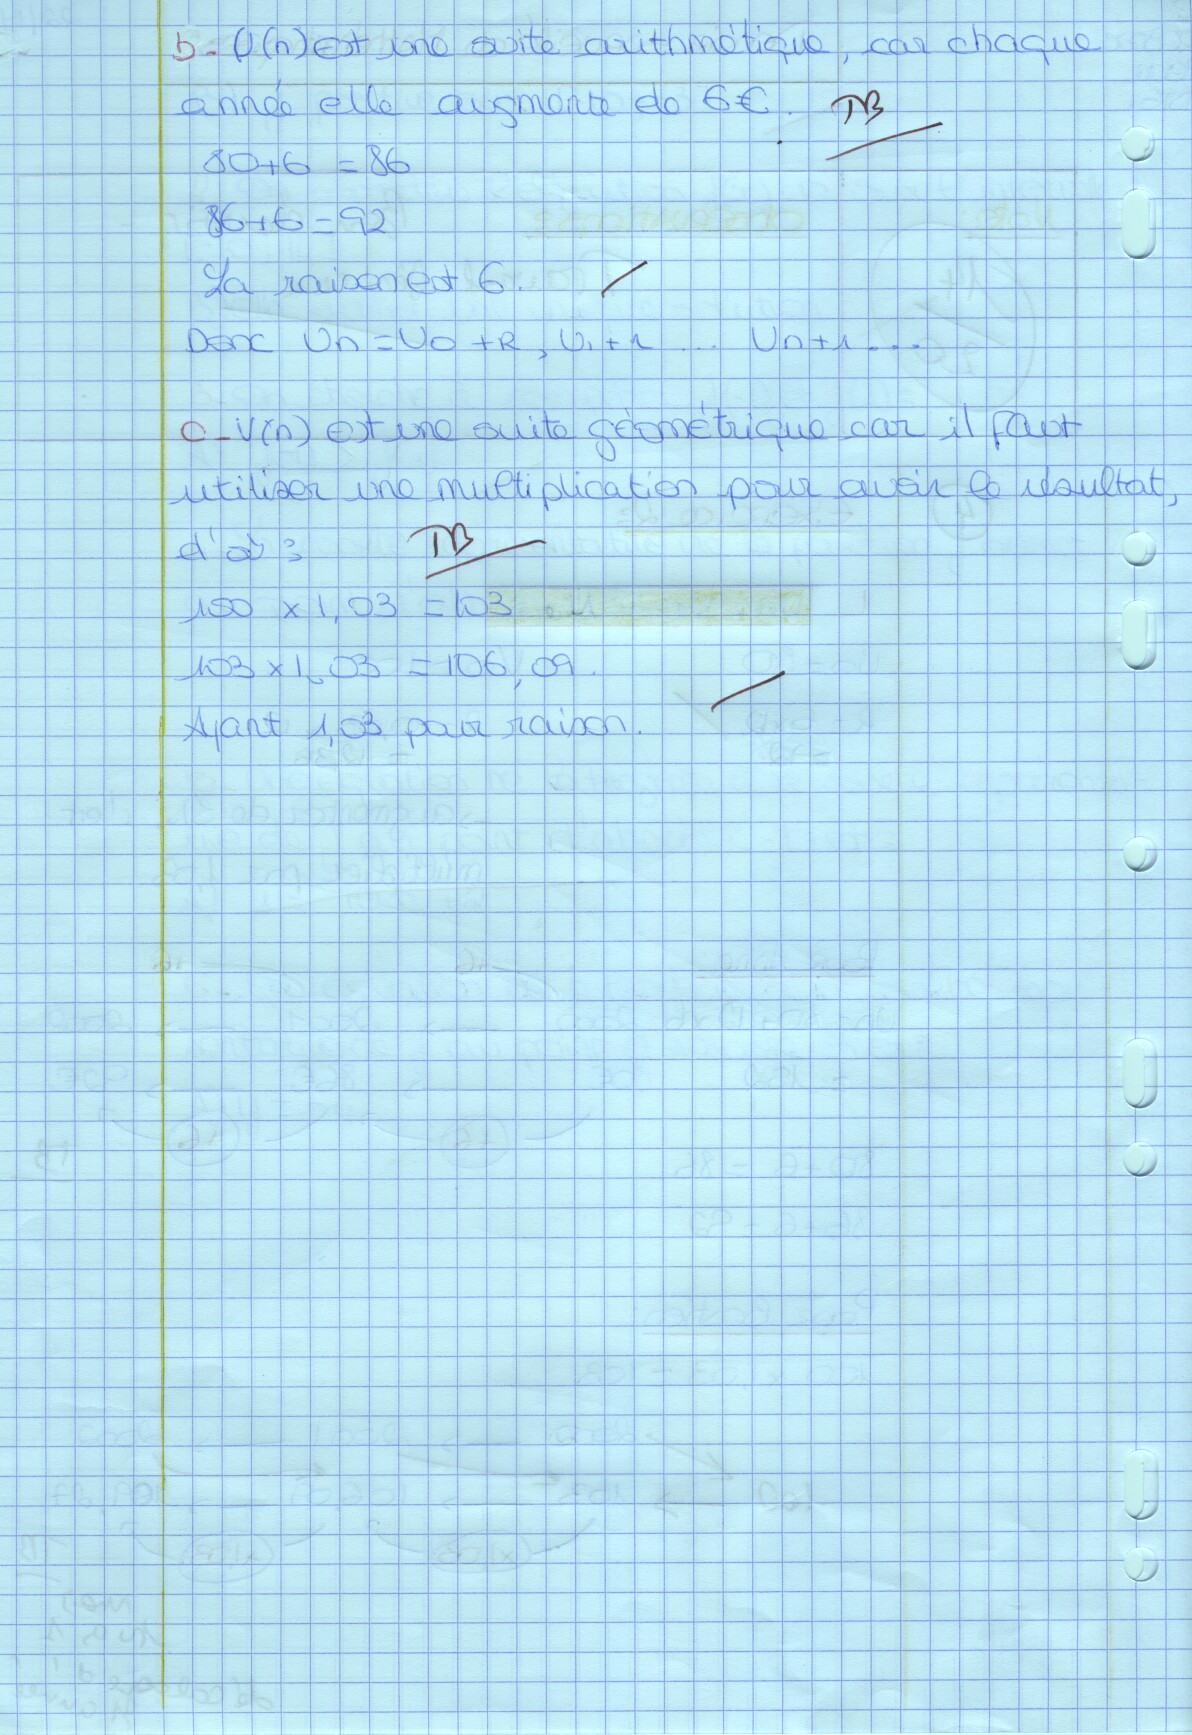 b- U(n) est une suite arithmétique, car chaque
année elle augmente de 6€. TB
80+6 = 86
86+6 = 92
La raison est 6.
Donc Un = U0 + R, U1 + r ... Un + r ...
c- V(n) est une suite géométrique car il faut
utiliser une multiplication pour avoir le résultat,
d'où : TB
100 x 1,03 = 103
103 x 1,03 = 106,09.
Ayant 1,03 pour raison.